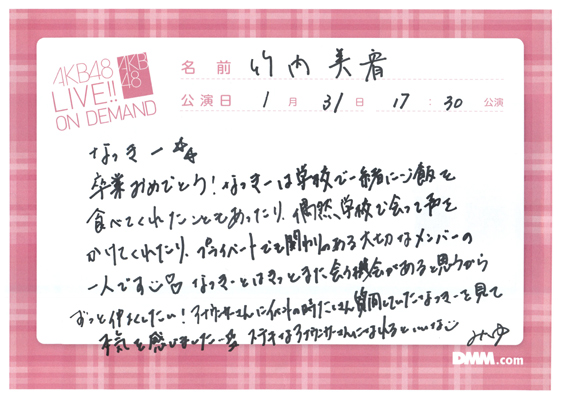 AKB48
LIVE!!
ON DEMAND
AKB
48
名前 竹内美宥
公演日 1月31日 17:30 公演
なっきー☆☆
卒業おめでとう!なっきーは学校で一緒にご飯を
食べてくれたこともあったり、偶然学校で会って声を
かけてくれたり、プライベートでも関わりのある大切なメンバーの
一人です♡ なっきーとはきっとまた会う機会があると思うから
ずっと仲よくしたい!アナウンサーさんにイベントの時たくさん質問していたなっきーを見て
本気を感じました ステキなアナウンサーさんになれるといいな
みゆ
DMM.com